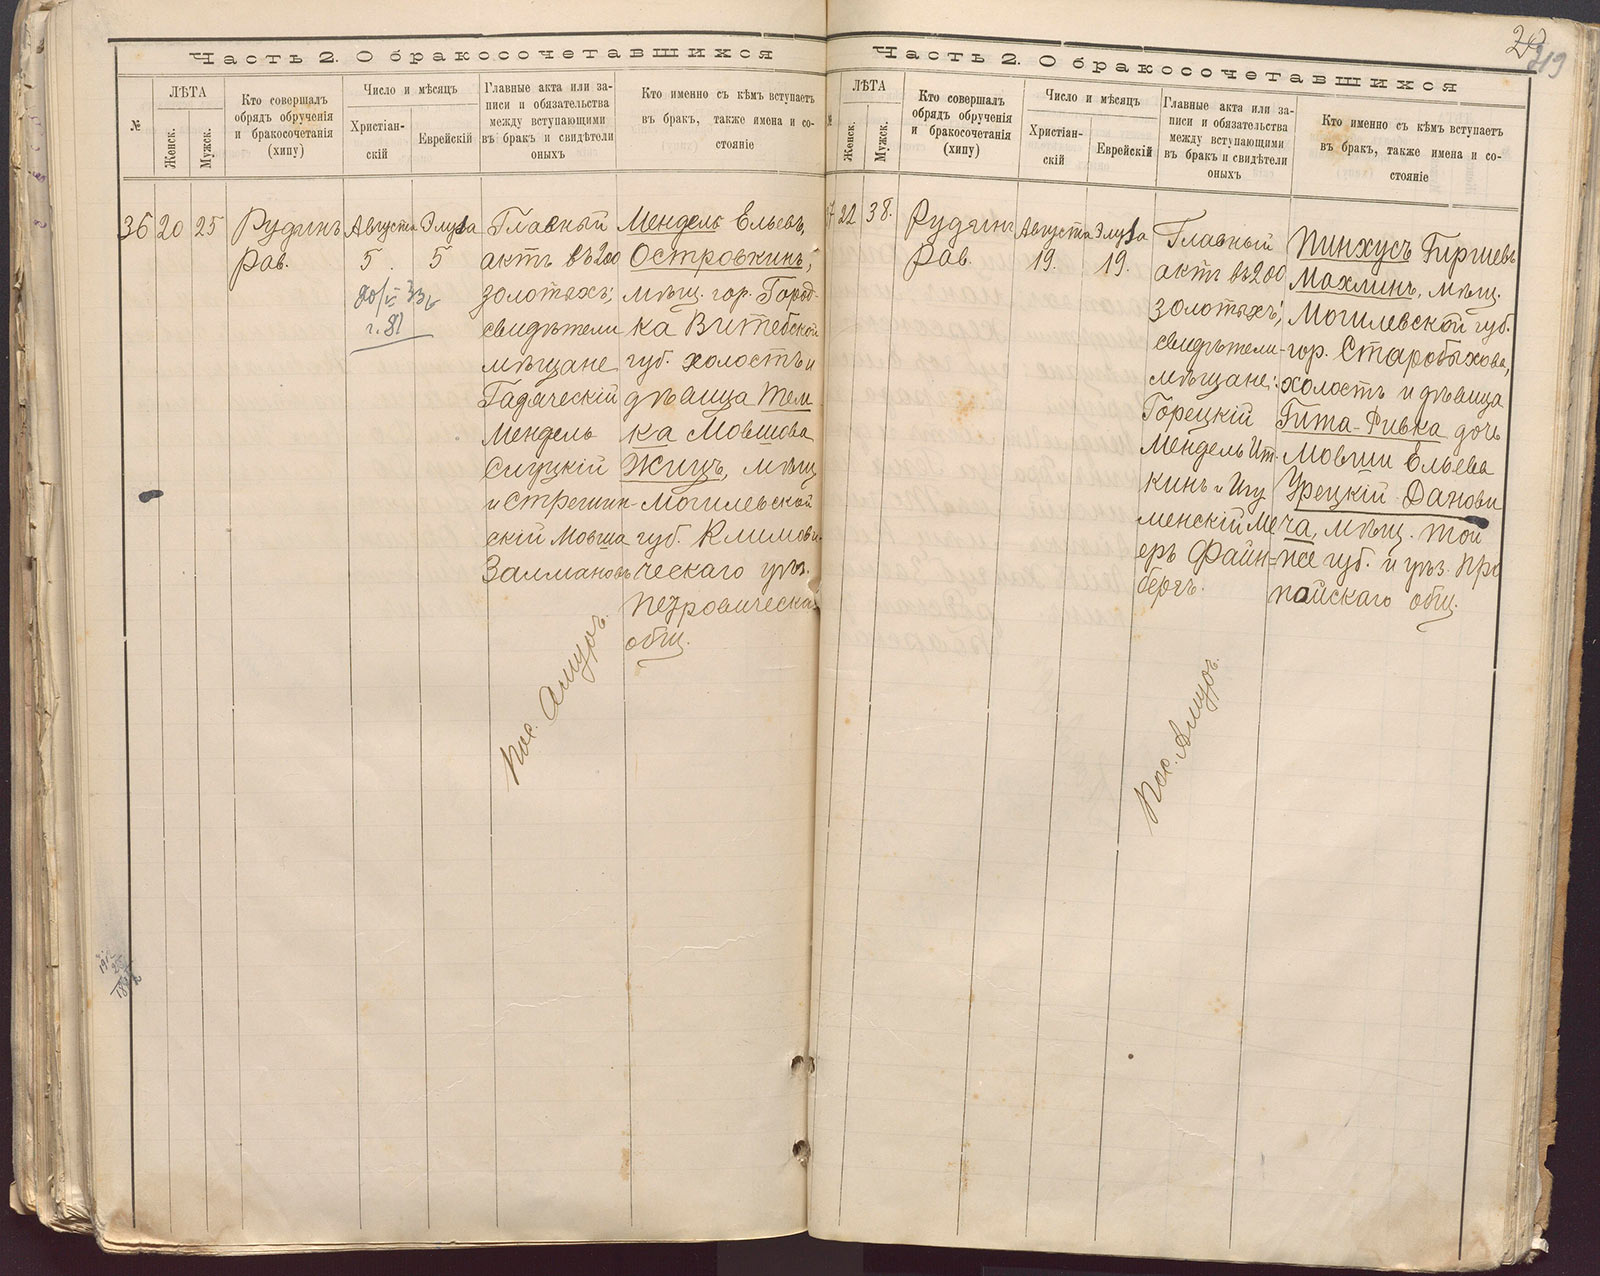 Часть 2. О бракосочетавшихся
№
ЛѢТА
Женск.
Мужск.
Кто совершалъ
обрядъ обрученія
и бракосочетанія
(хипу)
Число и мѣсяцъ
Христіан-
скій
Еврейскій
Главные акта или за-
писи и обязательства
между вступающими
въ бракъ и свидѣтели
оныхъ
Кто именно съ кѣмъ вступаетъ
въ бракъ, также имена и со-
стояніе
36
20
25
Рудинъ
Рав.
Августа
5.
г. 81
Элула
5
Главный
актъ въ 200
золотыхъ;
свидѣтели
мѣщане
Гадяческій
Мендель
Слуцкій
и Стрешин-
скій Мовша
Залмановъ
Мендель Ельевъ
Островкинъ,
мѣщ. гор. Город-
ка Витебской
губ. холостъ и
дѣвица Тем
ка Мовшова
Жицъ, мѣщ
Могилевской
губ. Климови-
ческаго уѣз.
Петровическа
общ.
Пос. Амуръ.
Часть 2. О бракосочетавшихся
219
№
ЛѢТА
Женск.
Мужск.
Кто совершалъ
обрядъ обрученія
и бракосочетанія
(хипу)
Число и мѣсяцъ
Христіан-
скій
Еврейскій
Главные акта или за-
писи и обязательства
между вступающими
въ бракъ и свидѣтели
оныхъ
Кто именно съ кѣмъ вступаетъ
въ бракъ, также имена и со-
стояніе
7
22
38.
Рудинъ
Рав.
Августа
19.
Элула
19.
Главный
актъ въ 200
золотыхъ;
свидѣтели-
мѣщане:
Горецкій
Мендель Ит-
кинъ и Игу
менскій Ме
еръ Файн=
бергъ.
Пинхусъ Гиршевъ
Махлинъ, мѣщ.
Могилевской губ.
гор. Старобыхова,
холостъ и дѣвица
Гита-Ривка дочь
Мовши Ельева
Урецкій Данови
ча, мѣщ. той
же губ. и уѣз. Про
пойскаго общ.
Пос. Амуръ.